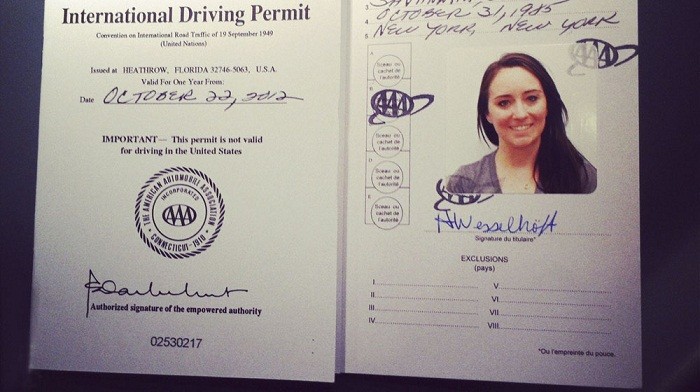 International Driving Permit
Convention on International Road Traffic of 19 September 1949
(United Nations)
Issued at HEATHROW, FLORIDA 32746-5063, U.S.A.
Valid For One Year From:
Date OCTOBER 22, 2012
IMPORTANT— This permit is not valid
for driving in the United States
THE AMERICAN AUTOMOBILE ASSOCIATION
INCORPORATED
AAA
CONNECTICUT-1910
Authorized signature of the empowered authority
02530217
3.
4. OCTOBER 31, 1985
5. NEW YORK, NEW YORK
AAA
A
Sceau ou
cachet de
l'autorité
B
AAA
Sceau ou
cachet de
l'autorité
D
Sceau ou
cachet de
l'autorité
E
Sceau ou
cachet de
l'autorité
HWesselhöft
Signature du titulaire*
EXCLUSIONS
(pays)
I
II
III
IV
V
VI
VII
VIII
*Ou l'empreinte du pouce.